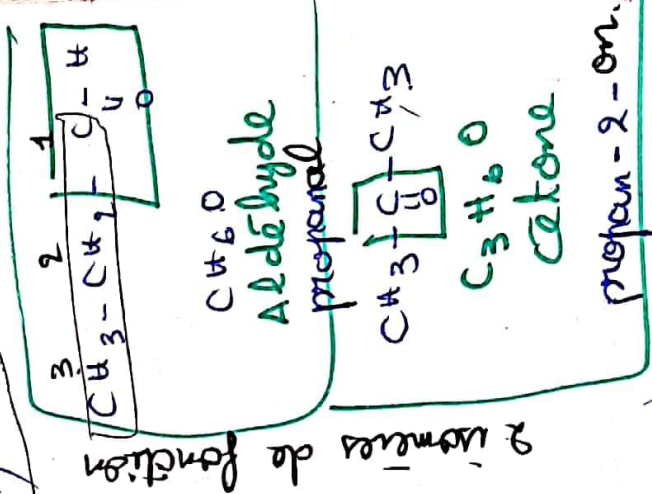 2 isomères de fonction
3 2 1
CH3 - CH2 - C - H
O
CH6O
Aldéhyde
propanal
CH3 - C - CH3
O
C3H6O
Cétone
propan-2-on.